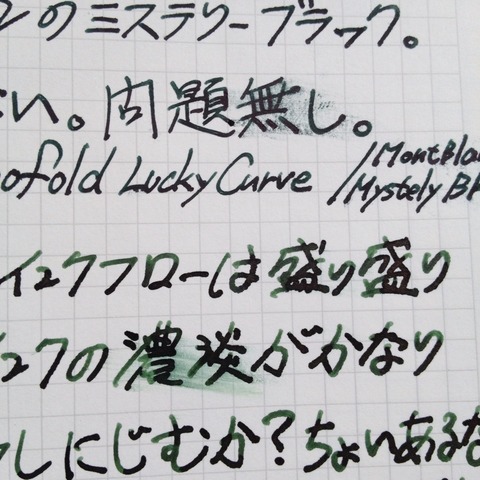 ンのミステリーブラック。
い。問題無し。
ofold Lucky Curve /MontBla
Mystely Bl
インクフローは盛り盛り
ンクの濃淡がかなり
しにじむか?ちょいあるな